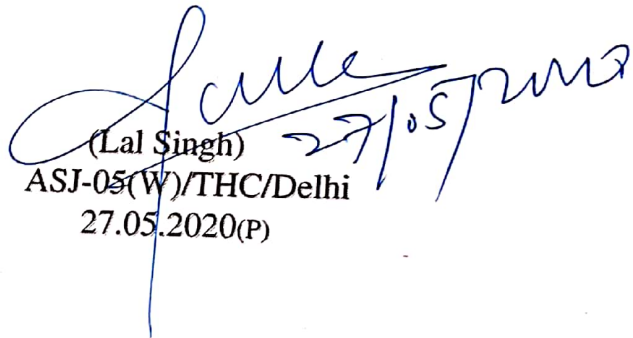 27/05/2020
(Lal Singh)
ASJ-05(W)/THC/Delhi
27.05.2020(P)